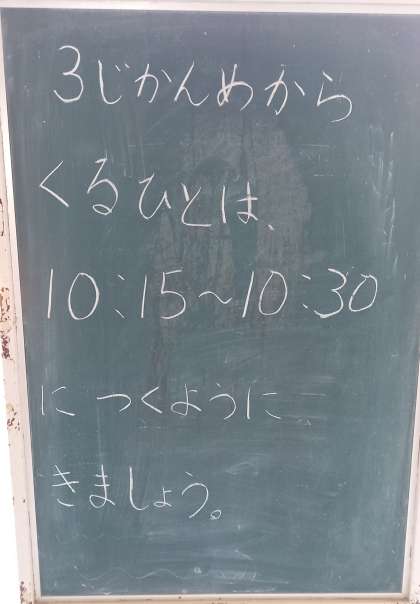 3じかんめから
くるひとは、
10:15～10:30
につくように
きましょう。